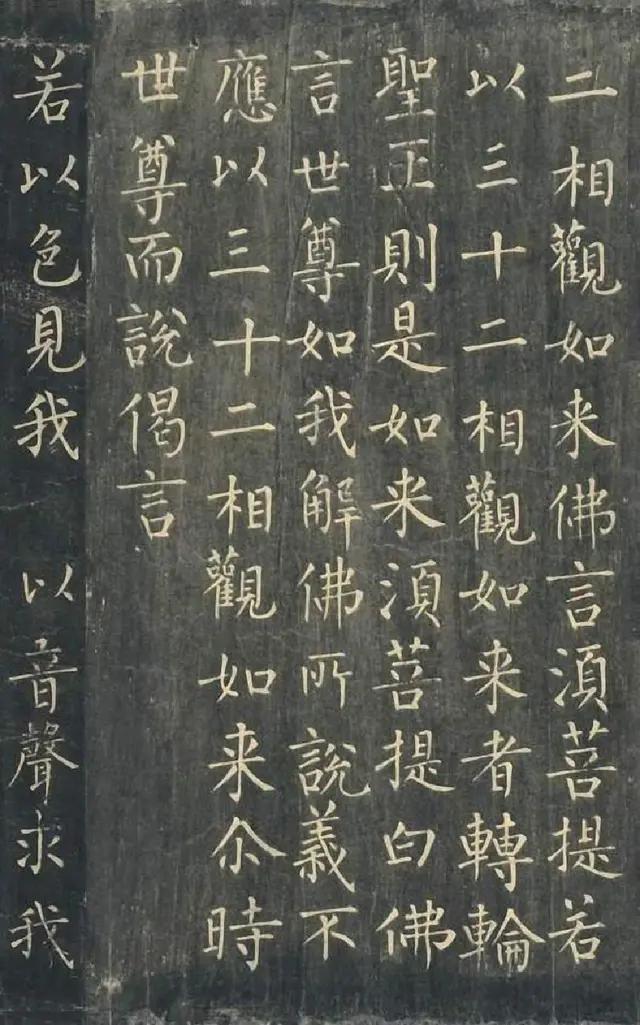 二相觀如来佛言湏菩提若
以三十二相觀如来者轉輪
聖王則是如来湏菩提白佛
言世尊如我解佛所說義不
應以三十二相觀如来尒時
世尊而說偈言
若以色見我 以音聲求我